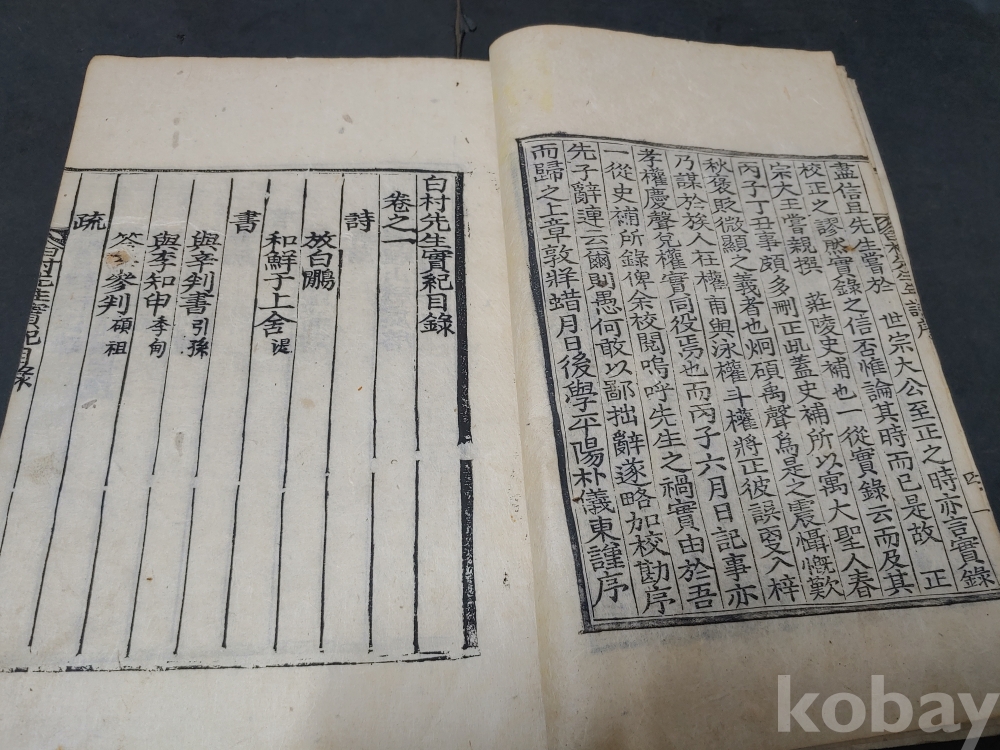 盡信且先生嘗於 世宗大公至正之時亦言實錄
校正之謬然實錄之信否惟論其時而已是故 正
宗大王嘗親撰 莊陵史補也一從實錄云而及其
丙子丁丑事頗多刪正此蓋史補所以寓大聖人春
秋褒貶微顯之義者也炯碩禹聲爲是之震懾慨歎
乃謀於族人在權甫與泳權斗權將正彼誤受入梓
孝權慶聲兌權實同役焉也而丙子六月日記事亦
一從史補所錄俾余校閱嗚呼先生之禍實由於吾
先子辭連云爾則愚何敢以鄙拙辭遂略加校勘序
而歸之上章敦牂蜡月日後學平陽朴儀東謹序
白村先生實紀目錄
卷之一
詩
放白鷴
和鮮于上舍 浞
書
與辛判書 引孫
與李知申 季甸
答 參判 碩祖
疏
白村先生實紀目錄
kobay